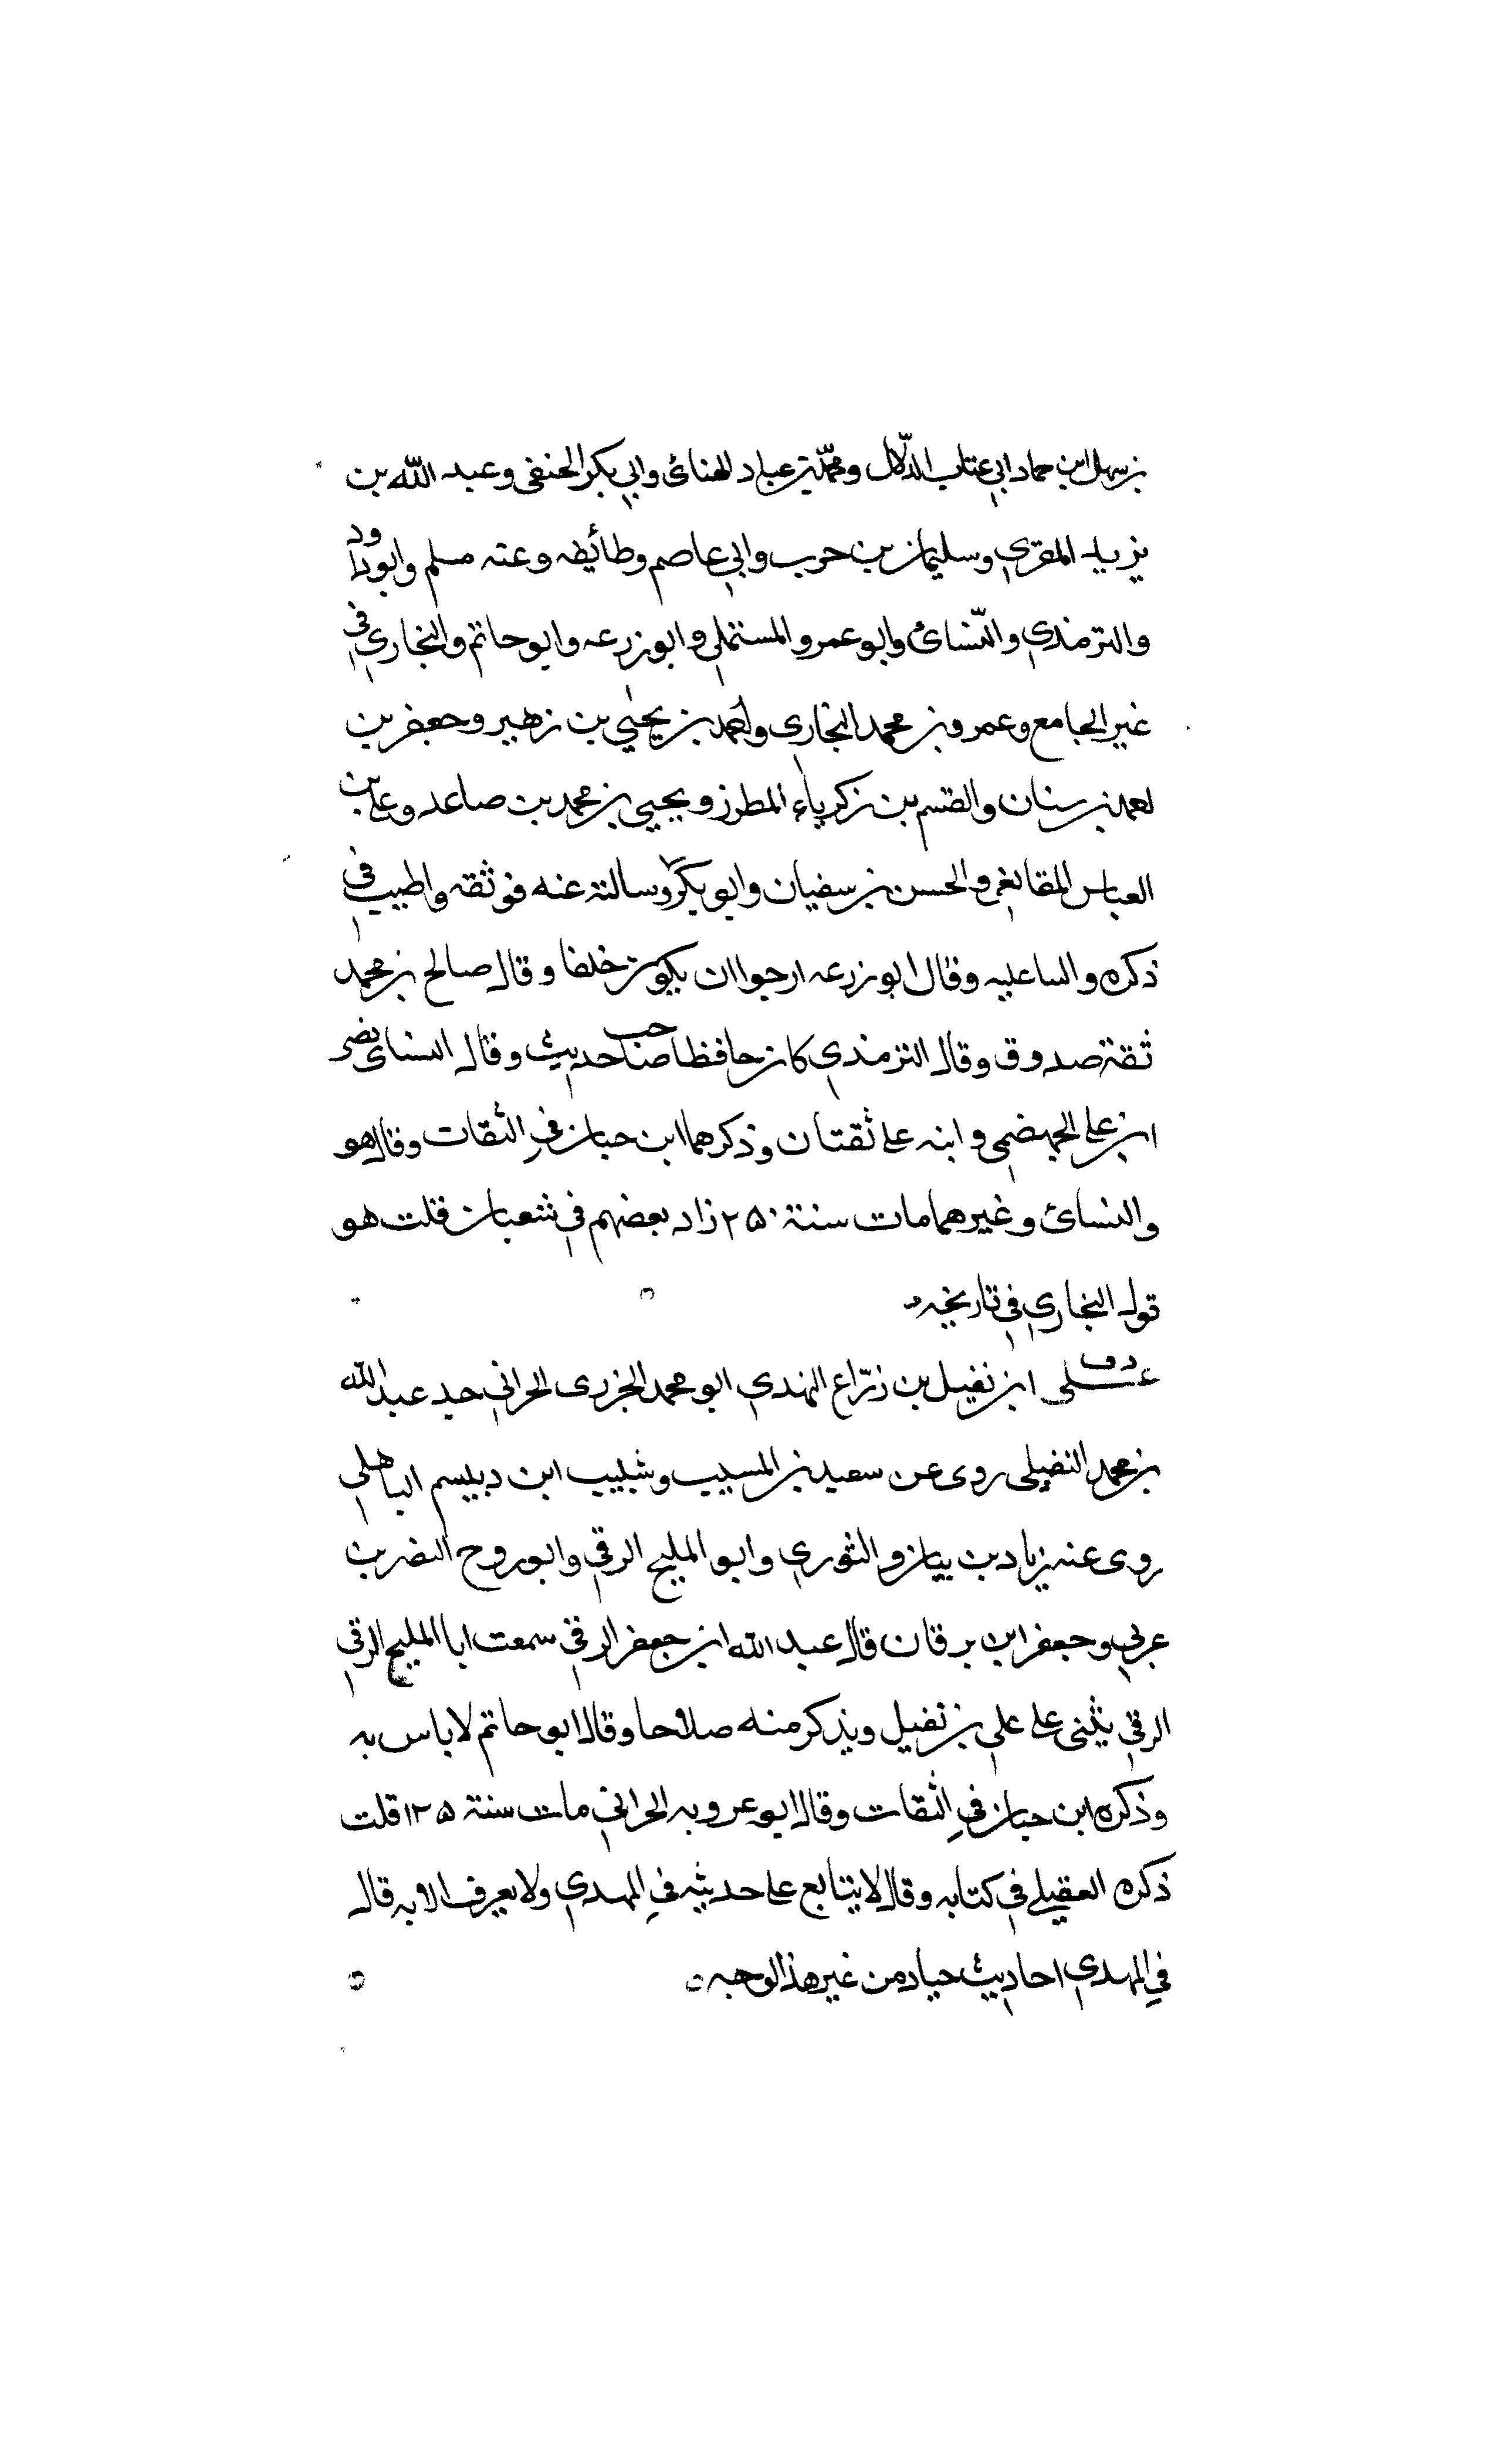 بن سهل ابن حماد ابي عتاب الدلّال ومحمّد بن عباد الهنائ وابي بكر الحنفى وعبد اللّه بن
يزيد المقري وسليمان بن حرب وابي عاصم وطائفه وعنه مسلم وابوداود
والترمذي والنّسائ وابو عمرو المستملي وابو زرعه وابو حاتم والبخاري في
غير الجامع وعمرو بن محمد البخارى واحمد بن يحيٰي بن زهير وجعفر بن
احمد بن سنان والقسم بن زكرياء المطرز ويحيى بن محمد بن صاعد وعلي بن
العباس المقانعي والحسن بن سفيان وابو بكر وسالته عنه فوثقه واطيب في
ذكره والساعليه وقال ابو زرعه ارجوا ان يكون خلفا وقال صالح بن محمد
ثقة صدوق وقال الترمذي كان حافظا صاحب حديث وقال النساى نصر
ابن على الجهضمى وابنه على ثقتان وذكرهما ابن حبان في الثقات وقال هو
والنسائ وغيرهما مات سنة ٢٥٠ زاد بعضهم في شعبان قلت هو
قول البخاري في تاريخه
د ق على ابن نفيل بن زرّاع النهدي ابو محمد الجزرى الحراني جد عبد اللّه
بن محمد النفيلى روى عن سعيد بن المسيب وشبيب ابن دبيسم الباهلي
روى عنه زياد بن بيان والثوري وابو المليح الرقي وابو روح النضر بن
عربي وجعفر ابن برقان قال عبد اللّه ابن جعفر الرقي سمعت ابا المليح الرقي
الرقي يثنى على علي بن نفيل ويذكر منه صلاحا وقال ابو حاتم لا باس به
وذكره ابن حبان في الثقات وقال ابو عروبه الحراني مات سنة ١٢٥ قلت
ذكره العقيلي في كتابه وقال لا يتابع على حديثه في المهدي ولا يعرف الا به قال
في المهدي احاديث جياد من غير هذا الوجه